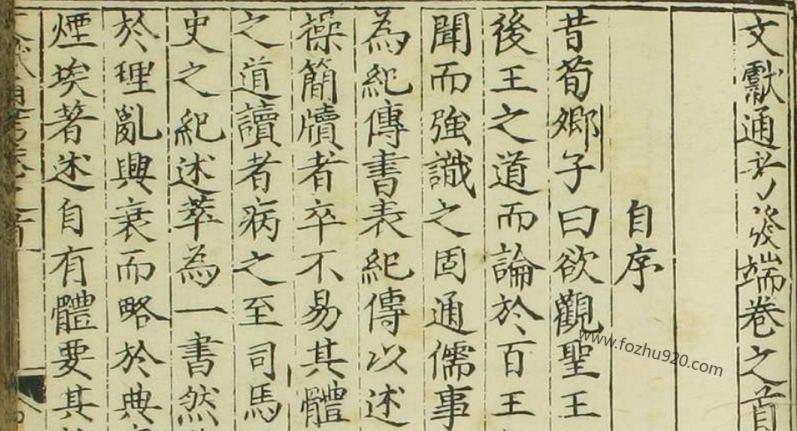 文獻通考發端卷之首
自序
昔荀卿子曰欲觀聖王
後王之道而論於百王
聞而強識之固通儒事
為紀傳書表紀傳以述
操簡牘者卒不易其體
之道讀者病之至司馬
史之紀述萃為一書然
於理亂興衰而略於典
煙埃著述自有體要其
www.fozhu920.com